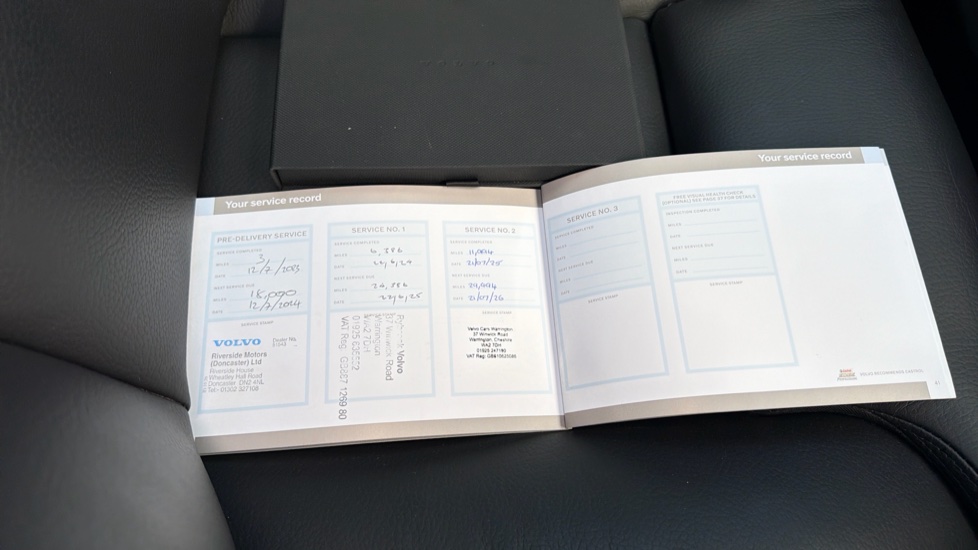 VOLVO
Your service record
PRE-DELIVERY SERVICE
SERVICE COMPLETED
MILES 3
DATE 12/7/2023
NEXT SERVICE DUE
MILES 18,000
DATE 12/7/2024
SERVICE STAMP
VOLVO Dealer No.
Riverside Motors
(Doncaster) Ltd
Riverside House
Wheatley Hall Road
Doncaster DN2 4NL
Tel: 01302 327108
SERVICE NO. 1
SERVICE COMPLETED
MILES 6,386
DATE
NEXT SERVICE DUE
MILES
DATE
SERVICE STAMP
Volvo
37 Winwick Road
Warrington
WA2 7DH
VAT Reg
SERVICE NO. 2
SERVICE COMPLETED
MILES
DATE 21/07/25
NEXT SERVICE DUE
MILES
DATE 21/07/26
SERVICE STAMP
Volvo Cars Warrington
37 Winwick Road
Warrington, Cheshire
WA2 7DH
VAT Reg.
Your service record
SERVICE NO. 3
SERVICE COMPLETED
MILES
DATE
NEXT SERVICE DUE
MILES
DATE
SERVICE STAMP
FREE VISUAL HEALTH CHECK
(OPTIONAL) SEE PAGE 37 FOR DETAILS
INSPECTION COMPLETED
MILES
DATE
NEXT SERVICE DUE
MILES
DATE
SERVICE STAMP
VOLVO RECOMMENDS CASTROL
41